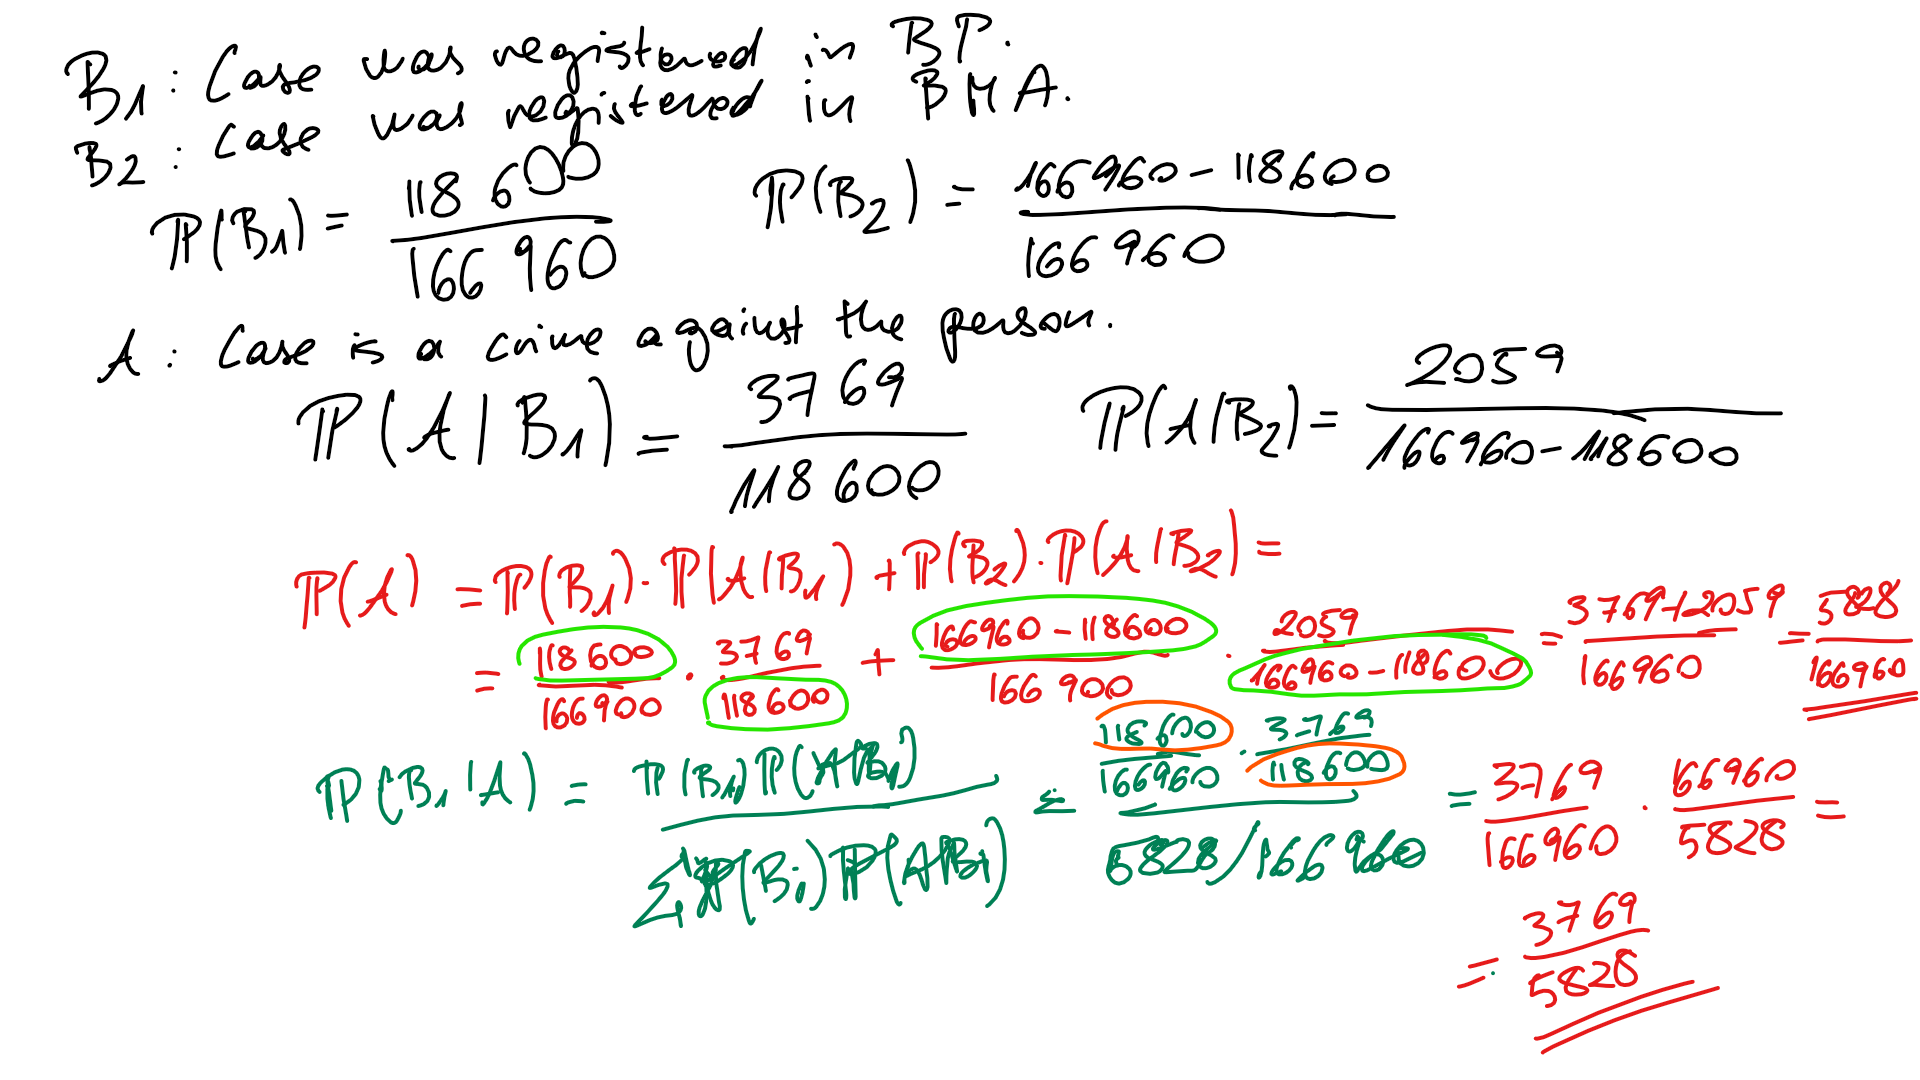 B1 : Case was registered in BP.
B2 : Case was registered in BMA.
ℙ(B1) = 118 600 / 166 960    ℙ(B2) = 166960 - 118600 / 166960
A : Case is a crime against the person.
ℙ(A | B1) = 3769 / 118 600    ℙ(A|B2) = 2059 / 166960 - 118600
ℙ(A) = ℙ(B1) · ℙ(A|B1) + ℙ(B2) · ℙ(A|B2) =
= 118600 / 166900 · 3769 / 118600 + 166960 - 118600 / 166 900 · 2059 / 166960 - 118600 = 3769+2059 / 166960 = 5828 / 166960
ℙ(B1|A) = ℙ(B1)ℙ(A|B1) / Σi ℙ(Bi)ℙ(A|Bi) = 118600 / 166960 · 3769 / 118600 / 5828/166960 = 3769 / 166960 · 166960 / 5828 =
= 3769 / 5828